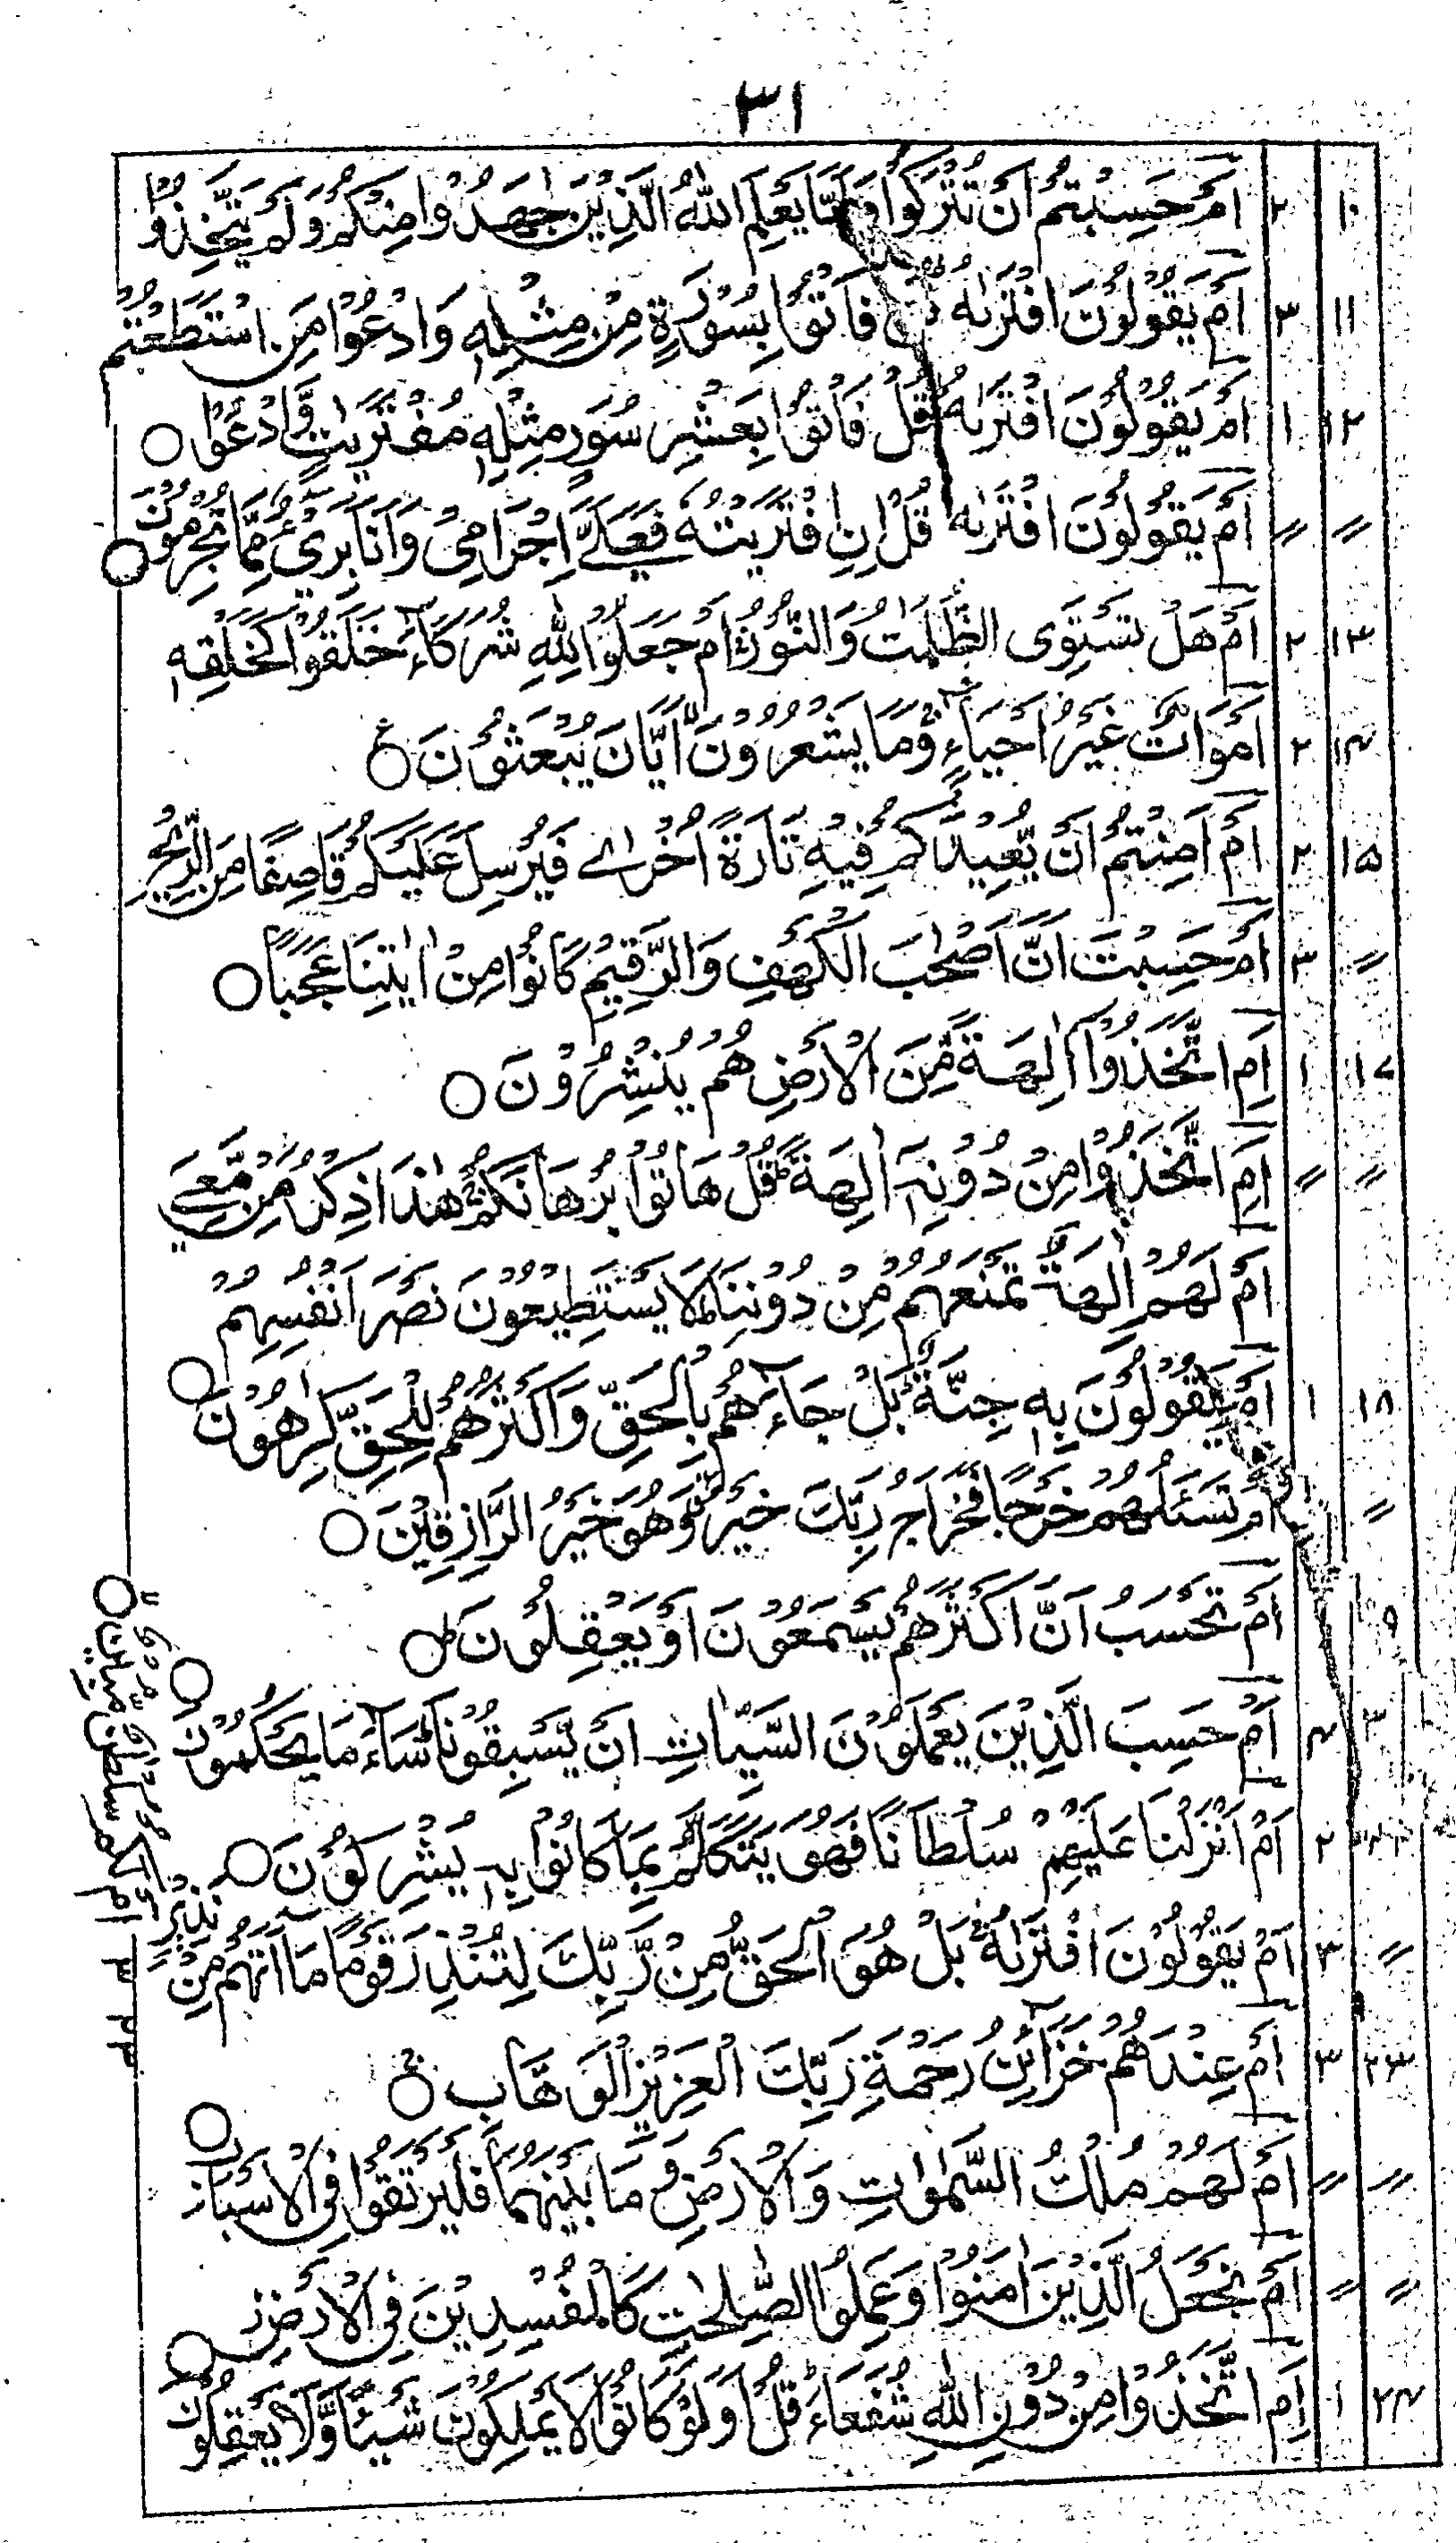 ٣١
١٠ ٢ اَمْ حَسِبْتُمْ اَنْ تُتْرَكُوْا وَلَمَّا يَعْلَمِ اللّٰهُ الَّذِيْنَ جٰهَدُوْا مِنْكُمْ وَلَمْ يَتَّخِذُوْا
١١ ٣ اَمْ يَقُوْلُوْنَ افْتَرٰىهُ قُلْ فَاْتُوْا بِسُوْرَةٍ مِنْ مِثْلِهٖ وَادْعُوْا مَنِ اسْتَطَعْتُمْ
١٢ ١ اَمْ يَقُوْلُوْنَ افْتَرٰىهُ قُلْ فَاْتُوْا بِعَشْرِ سُوَرٍ مِثْلِهٖ مُفْتَرَيٰتٍ وَّادْعُوْا ○
〃 〃 اَمْ يَقُوْلُوْنَ افْتَرٰىهُ قُلْ اِنِ افْتَرَيْتُهٗ فَعَلَيَّ اِجْرَامِىْ وَاَنَا بَرِىْءٌ مِّمَّا تُجْرِمُوْنَ ○
١٣ ٢ اَمْ هَلْ تَسْتَوِى الظُّلُمٰتُ وَالنُّوْرُ اَمْ جَعَلُوْا لِلّٰهِ شُرَكَآءَ خَلَقُوْا كَخَلْقِهٖ
١٤ ٢ اَمْوَاتٌ غَيْرُ اَحْيَآءٍ وَمَا يَشْعُرُوْنَ اَيَّانَ يُبْعَثُوْنَ ○ ع
١٥ ٢ اَمْ اَمِنْتُمْ اَنْ يُّعِيْدَكُمْ فِيْهِ تَارَةً اُخْرٰى فَيُرْسِلَ عَلَيْكُمْ قَاصِفًا مِنَ الرِّيْحِ
〃 ٣ اَمْ حَسِبْتَ اَنَّ اَصْحٰبَ الْكَهْفِ وَالرَّقِيْمِ كَانُوْا مِنْ اٰيٰتِنَا عَجَبًا ○
١٧ ١ اَمِ اتَّخَذُوْٓا اٰلِهَةً مِّنَ الْاَرْضِ هُمْ يُنْشِرُوْنَ ○
〃 〃 اَمِ اتَّخَذُوْا مِنْ دُوْنِهٖٓ اٰلِهَةً ط قُلْ هَاتُوْا بُرْهَانَكُمْ ج هٰذَا ذِكْرُ مَنْ مَّعِيَ
اَمْ لَهُمْ اٰلِهَةٌ تَمْنَعُهُمْ مِّنْ دُوْنِنَا ط لَا يَسْتَطِيْعُوْنَ نَصْرَ اَنْفُسِهِمْ
١٨ ١ اَمْ يَقُوْلُوْنَ بِهٖ جِنَّةٌ بَلْ جَآءَهُمْ بِالْحَقِّ وَاَكْثَرُهُمْ لِلْحَقِّ كٰرِهُوْنَ ○
〃 اَمْ تَسْئَلُهُمْ خَرْجًا فَخَرَاجُ رَبِّكَ خَيْرٌ وَّهُوَ خَيْرُ الرَّازِقِيْنَ ○
١٩ اَمْ تَحْسَبُ اَنَّ اَكْثَرَهُمْ يَسْمَعُوْنَ اَوْ يَعْقِلُوْنَ ط ○
٤ اَمْ حَسِبَ الَّذِيْنَ يَعْمَلُوْنَ السَّيِّاٰتِ اَنْ يَّسْبِقُوْنَا ط سَآءَ مَا يَحْكُمُوْنَ ○
٢ اَمْ اَنْزَلْنَا عَلَيْهِمْ سُلْطَانًا فَهُوَ يَتَكَلَّمُ بِمَا كَانُوْا بِهٖ يُشْرِكُوْنَ ○
〃 ٣ اَمْ يَقُوْلُوْنَ افْتَرٰىهُ ج بَلْ هُوَ الْحَقُّ مِنْ رَّبِّكَ لِتُنْذِرَ قَوْمًا مَا اَتٰهُمْ مِنْ نَذِيْرٍ
٢٣ ٣ اَمْ عِنْدَهُمْ خَزَآئِنُ رَحْمَةِ رَبِّكَ الْعَزِيْزِ الْوَهَّابِ ○
〃 〃 اَمْ لَهُمْ مُلْكُ السَّمٰوٰتِ وَالْاَرْضِ وَمَا بَيْنَهُمَا فَلْيَرْتَقُوْا فِى الْاَسْبَابِ ○
〃 〃 اَمْ نَجْعَلُ الَّذِيْنَ اٰمَنُوْا وَعَمِلُوا الصّٰلِحٰتِ كَالْمُفْسِدِيْنَ فِى الْاَرْضِ ز
٢٤ ١ اَمِ اتَّخَذُوْا مِنْ دُوْنِ اللّٰهِ شُفَعَآءَ ط قُلْ اَوَلَوْ كَانُوْا لَا يَمْلِكُوْنَ شَيْئًا وَّلَا يَعْقِلُوْنَ ○
٢٣ ٣ اَمْ لَكُمْ سُلْطٰنٌ مُّبِيْنٌ ○